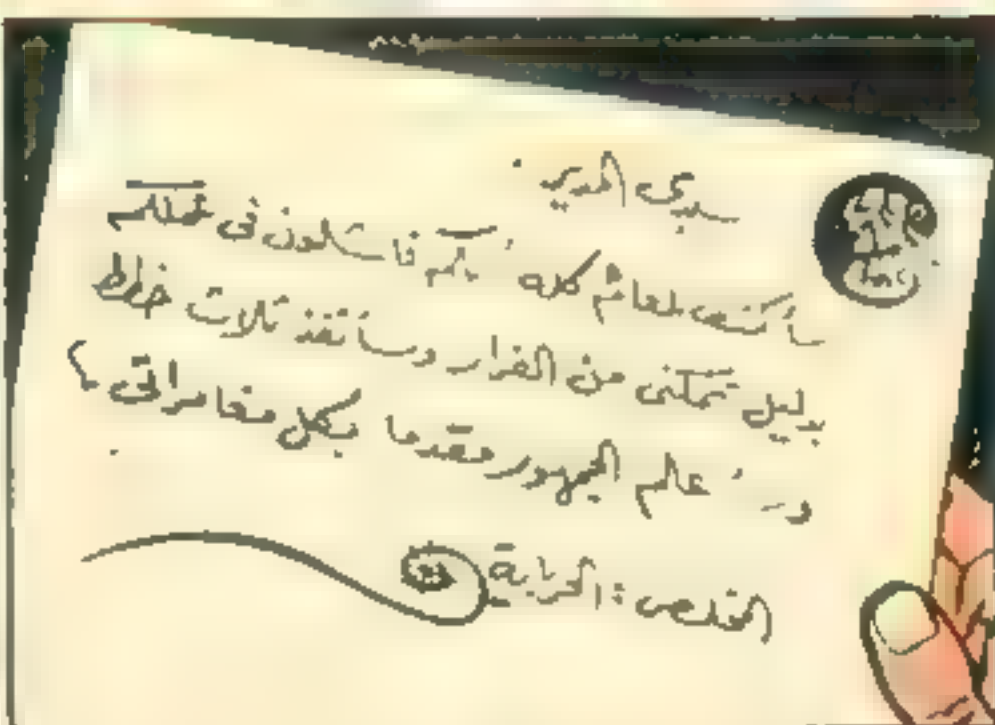 سيدي المدير .
سأكشف للعالم كله أنكم فاشلون في عملكم
بدليل تمكني من الفرار وسأنفذ ثلاث خطط
و عالم الجمهور مقدما بكل مغامراتي
المخلص : الحرباية